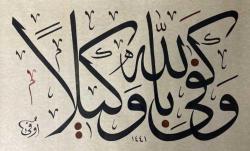 وَكَفَىٰ بِاللَّهِ وَكِيلًا
١٤٤١